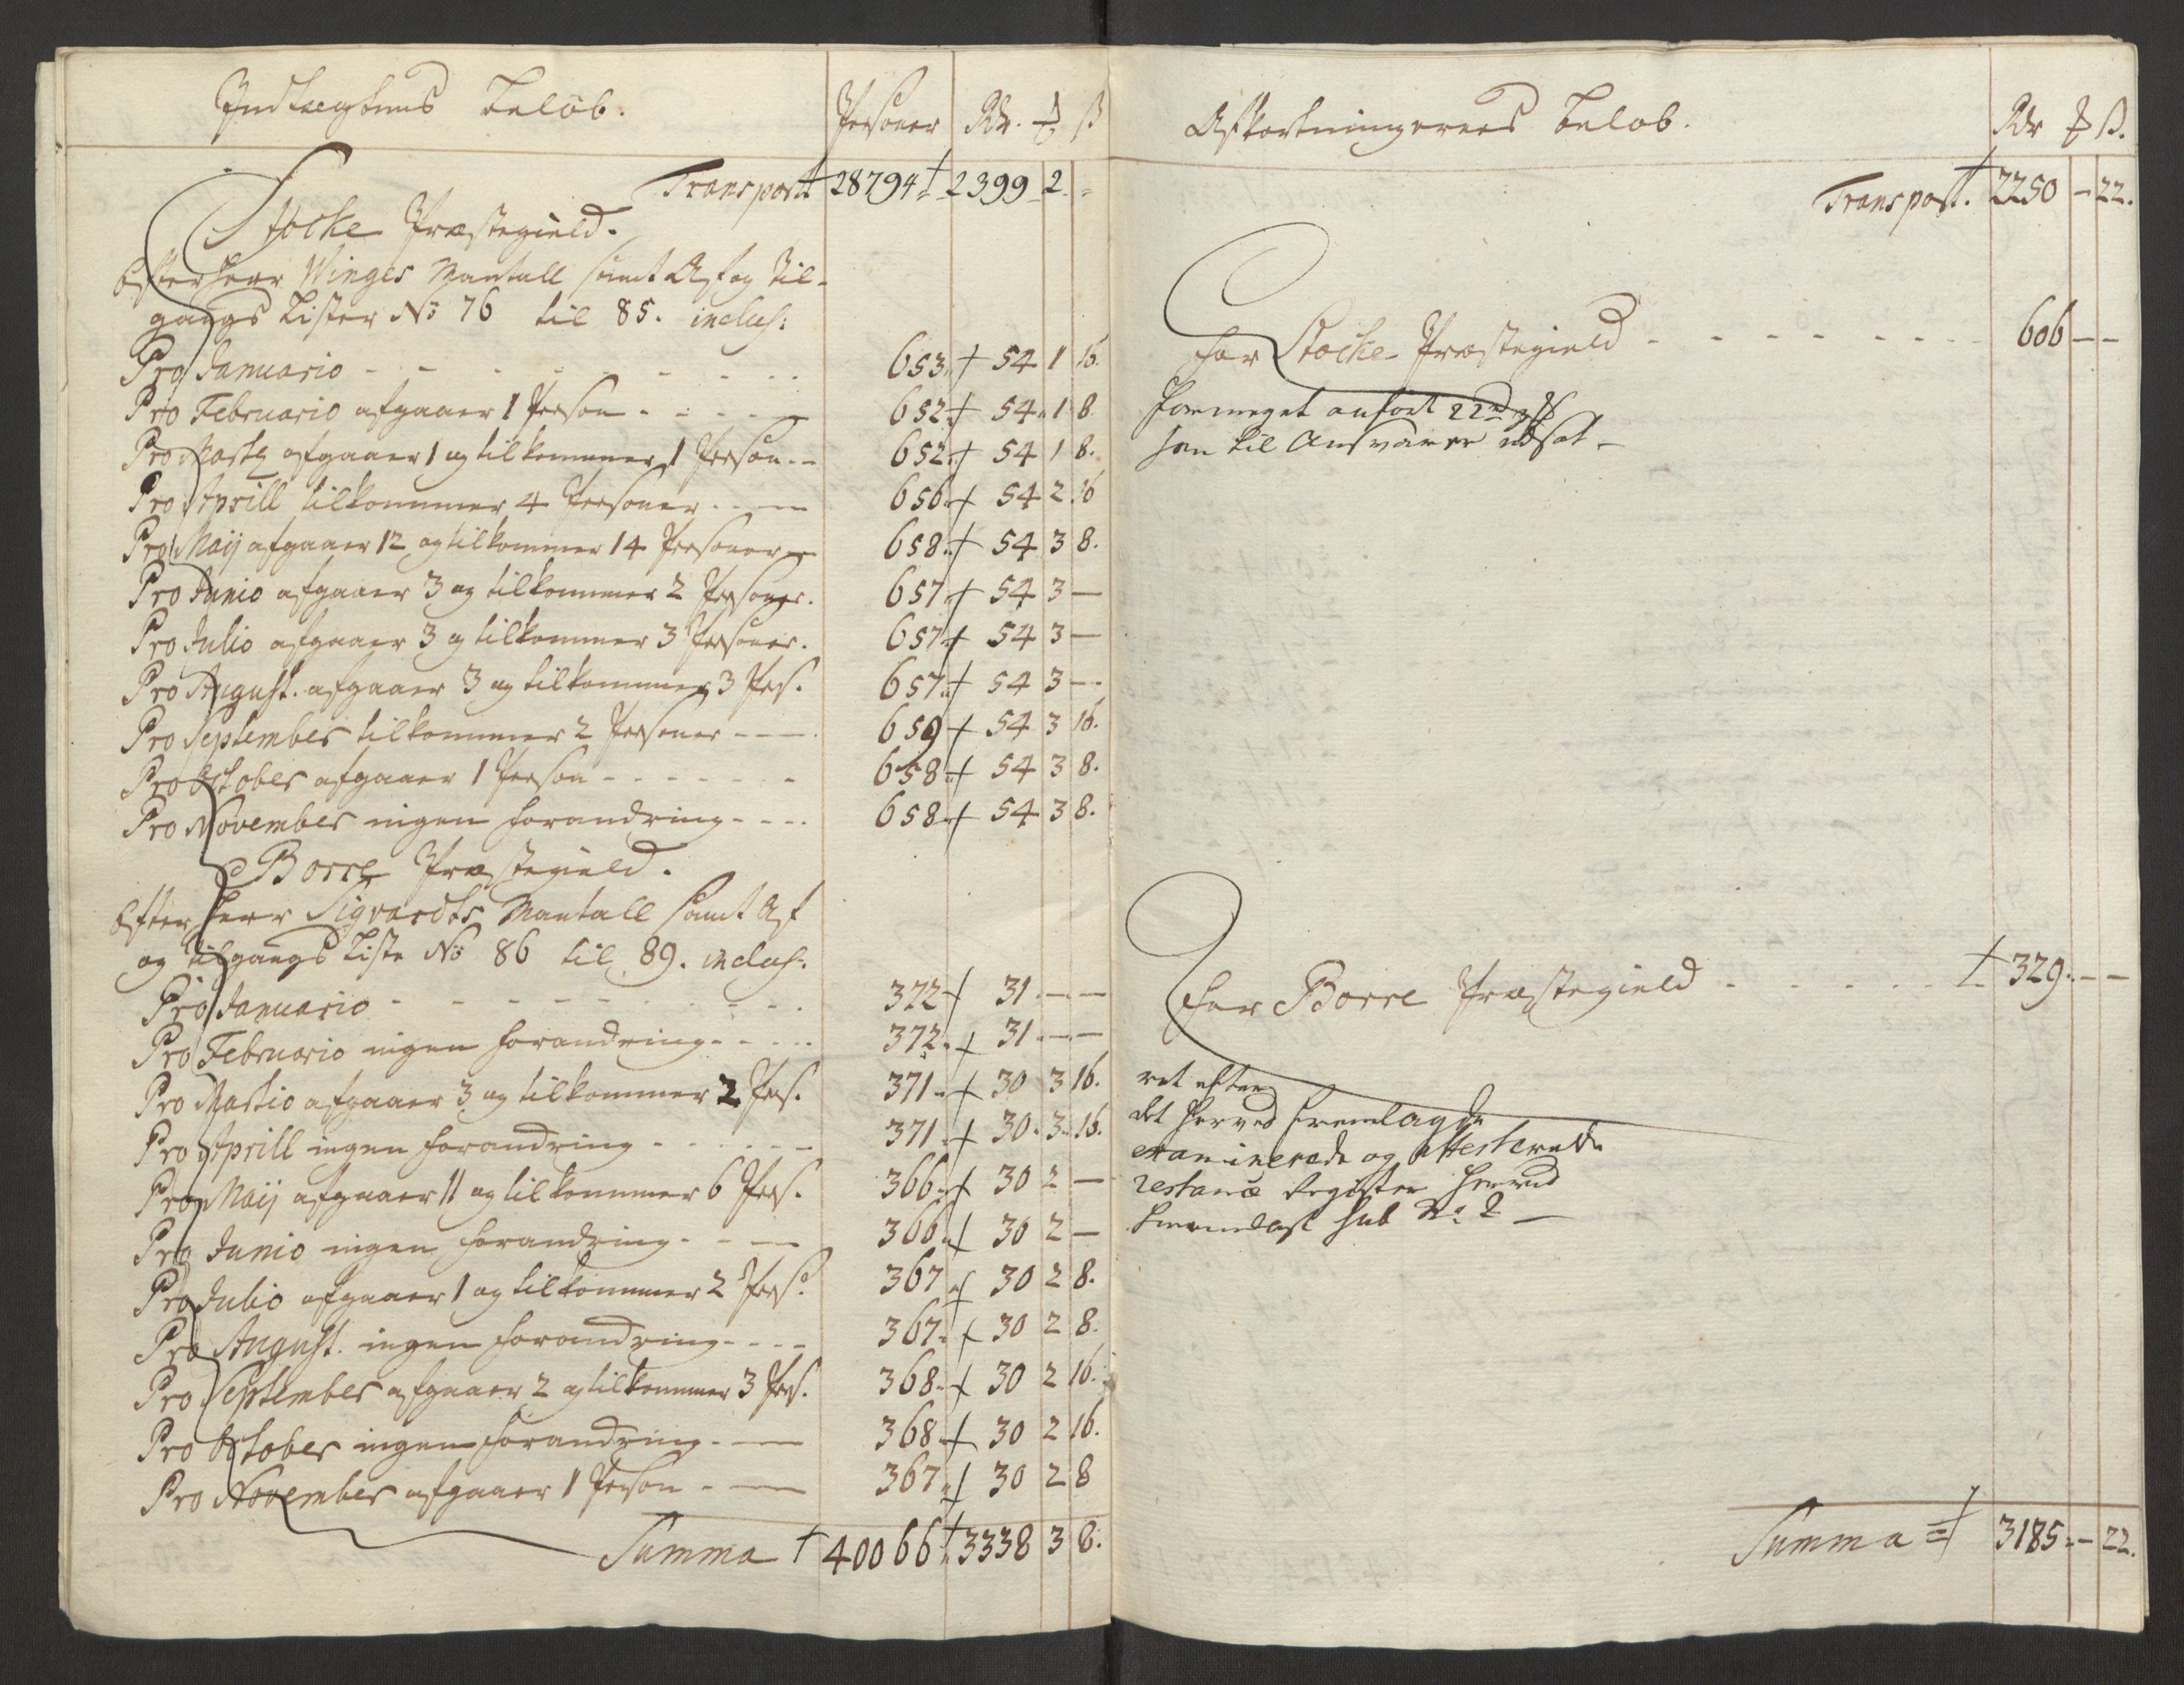 Indtægtens Beløb. Personer Rdr. ß
Transport 28794 2399 2 -
Stocke Præstegield.
Efter Herr Winges Mantall samt Af og Til-
gangs Lister No 76 til 85. inclus:
Pro Januario - - - 653 54 1 16.
Pro Februario afgaaer 1 Person - - - 652 54 1 8
Pro Marty afgaaer 1 og tilkommer 1 Person - - 652 54 1 8.
Pro Aprill tilkommer 4 Personer - - - 656 54 2 16
Pro Maij afgaaer 12 og tilkommer 14 Personer - 658 54 3 8.
Pro Junio afgaaer 3 og tilkommer 2 Personer. 657 54 3 —
Pro Julio afgaaer 3 og tilkommer 3 Personer. 657 54 3 —
Pro August. afgaaer 3 og tilkommer 3 Pers. 657 54 3 —
Pro September tilkommer 2 Personer - - - 659 54 3 16.
Pro October afgaaer 1 Person - - - 658 54 3 8.
Pro November ingen forandring - - - 658 54 3 8.
Borre Præstegield.
Efter Herr Sigvardts Mantall samt Af
og Tilgangs Liste No 86 til 89. inclus:
Pro Januario - - - 372 31 — —
Pro Februario ingen forandring - - - 372 31 — —
Pro Martio afgaaer 3 og tilkommer 2 Pers. 371 30 3 16.
Pro Aprill ingen forandring - - - 371 30 3 16.
Pro Maij afgaaer 11 og tilkommer 6 Pers. 366 30 2 —
Pro Junio ingen forandring - - - 366 30 2 —
Pro Julio afgaaer 1 og tilkommer 2 Pers. 367 30 2 8.
Pro August. ingen forandring - - - 367 30 2 8.
Pro September afgaaer 2 og tilkommer 3 Pers. 368 30 2 16.
Pro October ingen forandring - - - 368 30 2 16.
Pro November afgaaer 1 Person - - - 367 30 2 8
Summa 40066 3338 3 8.
Afkortningernes Beløb. Rdr ß.
Transport. 2250 - 22.
for Stocke Præstegield - - - 606 — —
saameget anført
til Ansvar udsat -
for Borre Præstegield - - - 329. — —
ret efter
det herved fremlagde
examinerede og attesterede
restance Register herved
fremlagt sub No 2 —
Summa 3185 - 22.